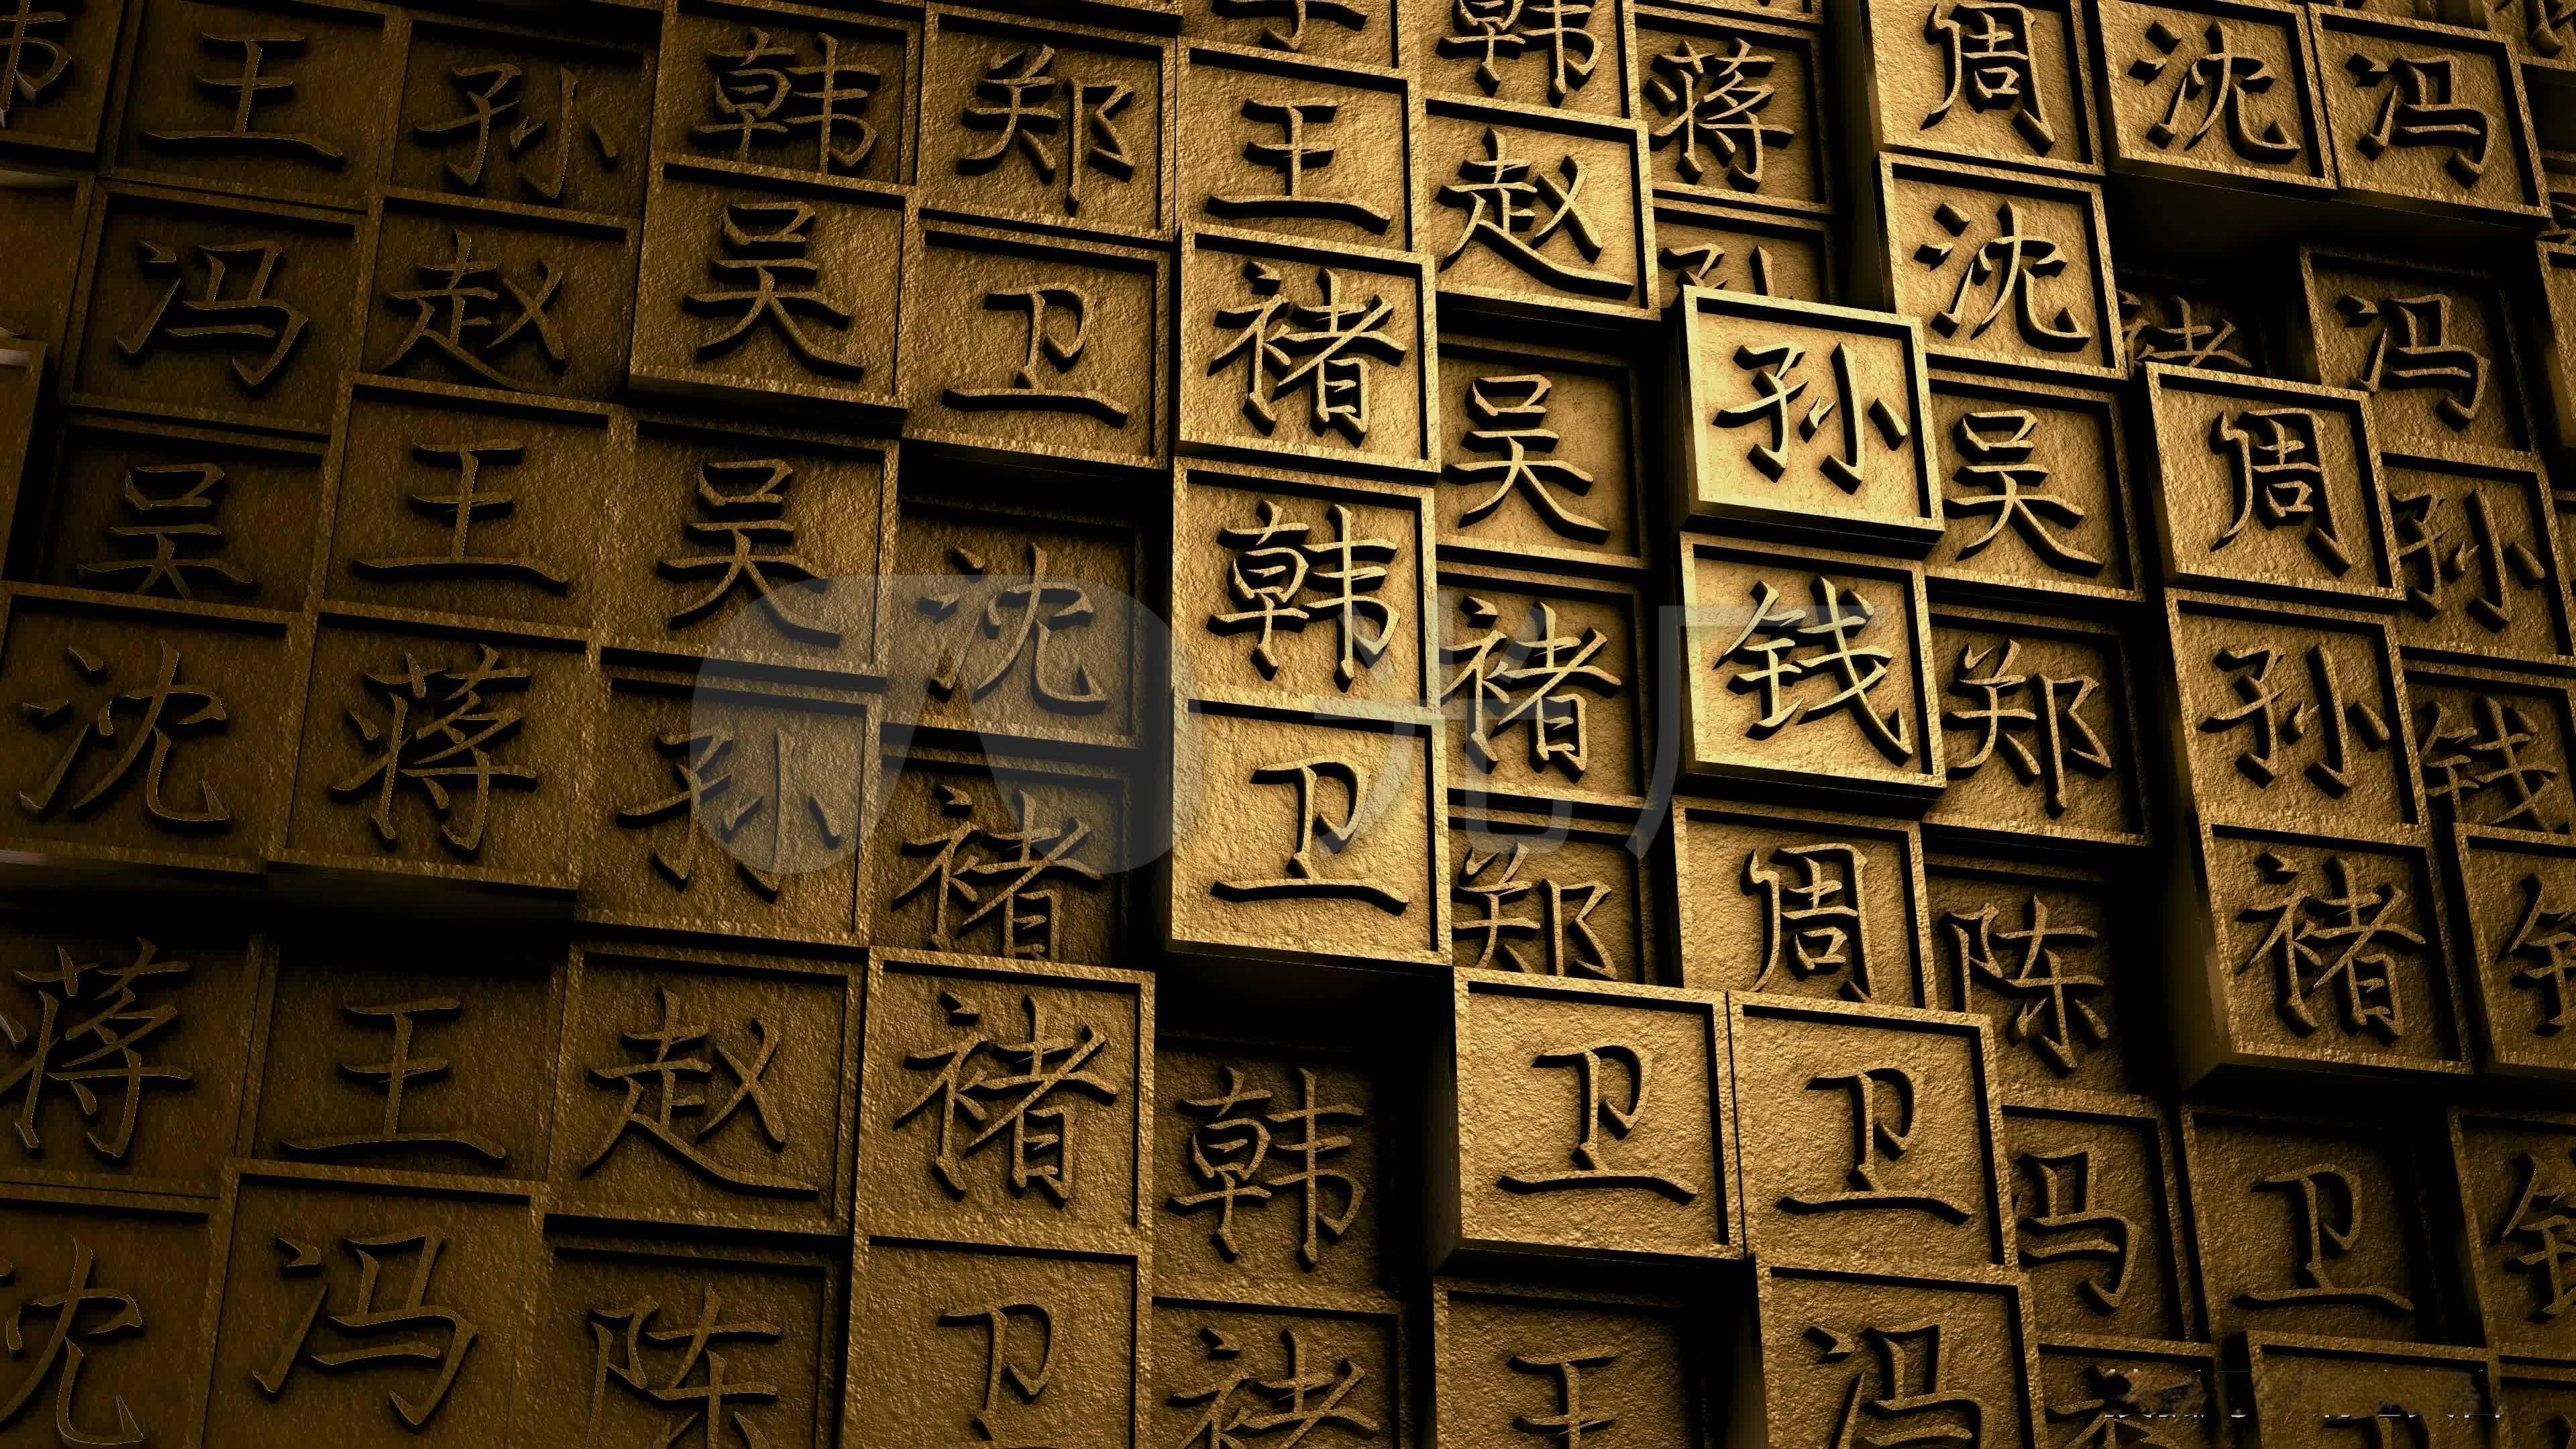 王 孙 韩 郑 王 韩 蒋 周 沈 冯
冯 赵 吴 卫 褚 赵 孙 沈 褚 冯
吴 王 吴 沈 韩 吴 孙 吴 周 孙
沈 蒋 孙 褚 卫 褚 钱 郑 孙 钱
蒋 王 赵 褚 韩 郑 周 陈 褚
沈 冯 陈 卫 褚 卫 卫 冯 卫
王 冯
光厂